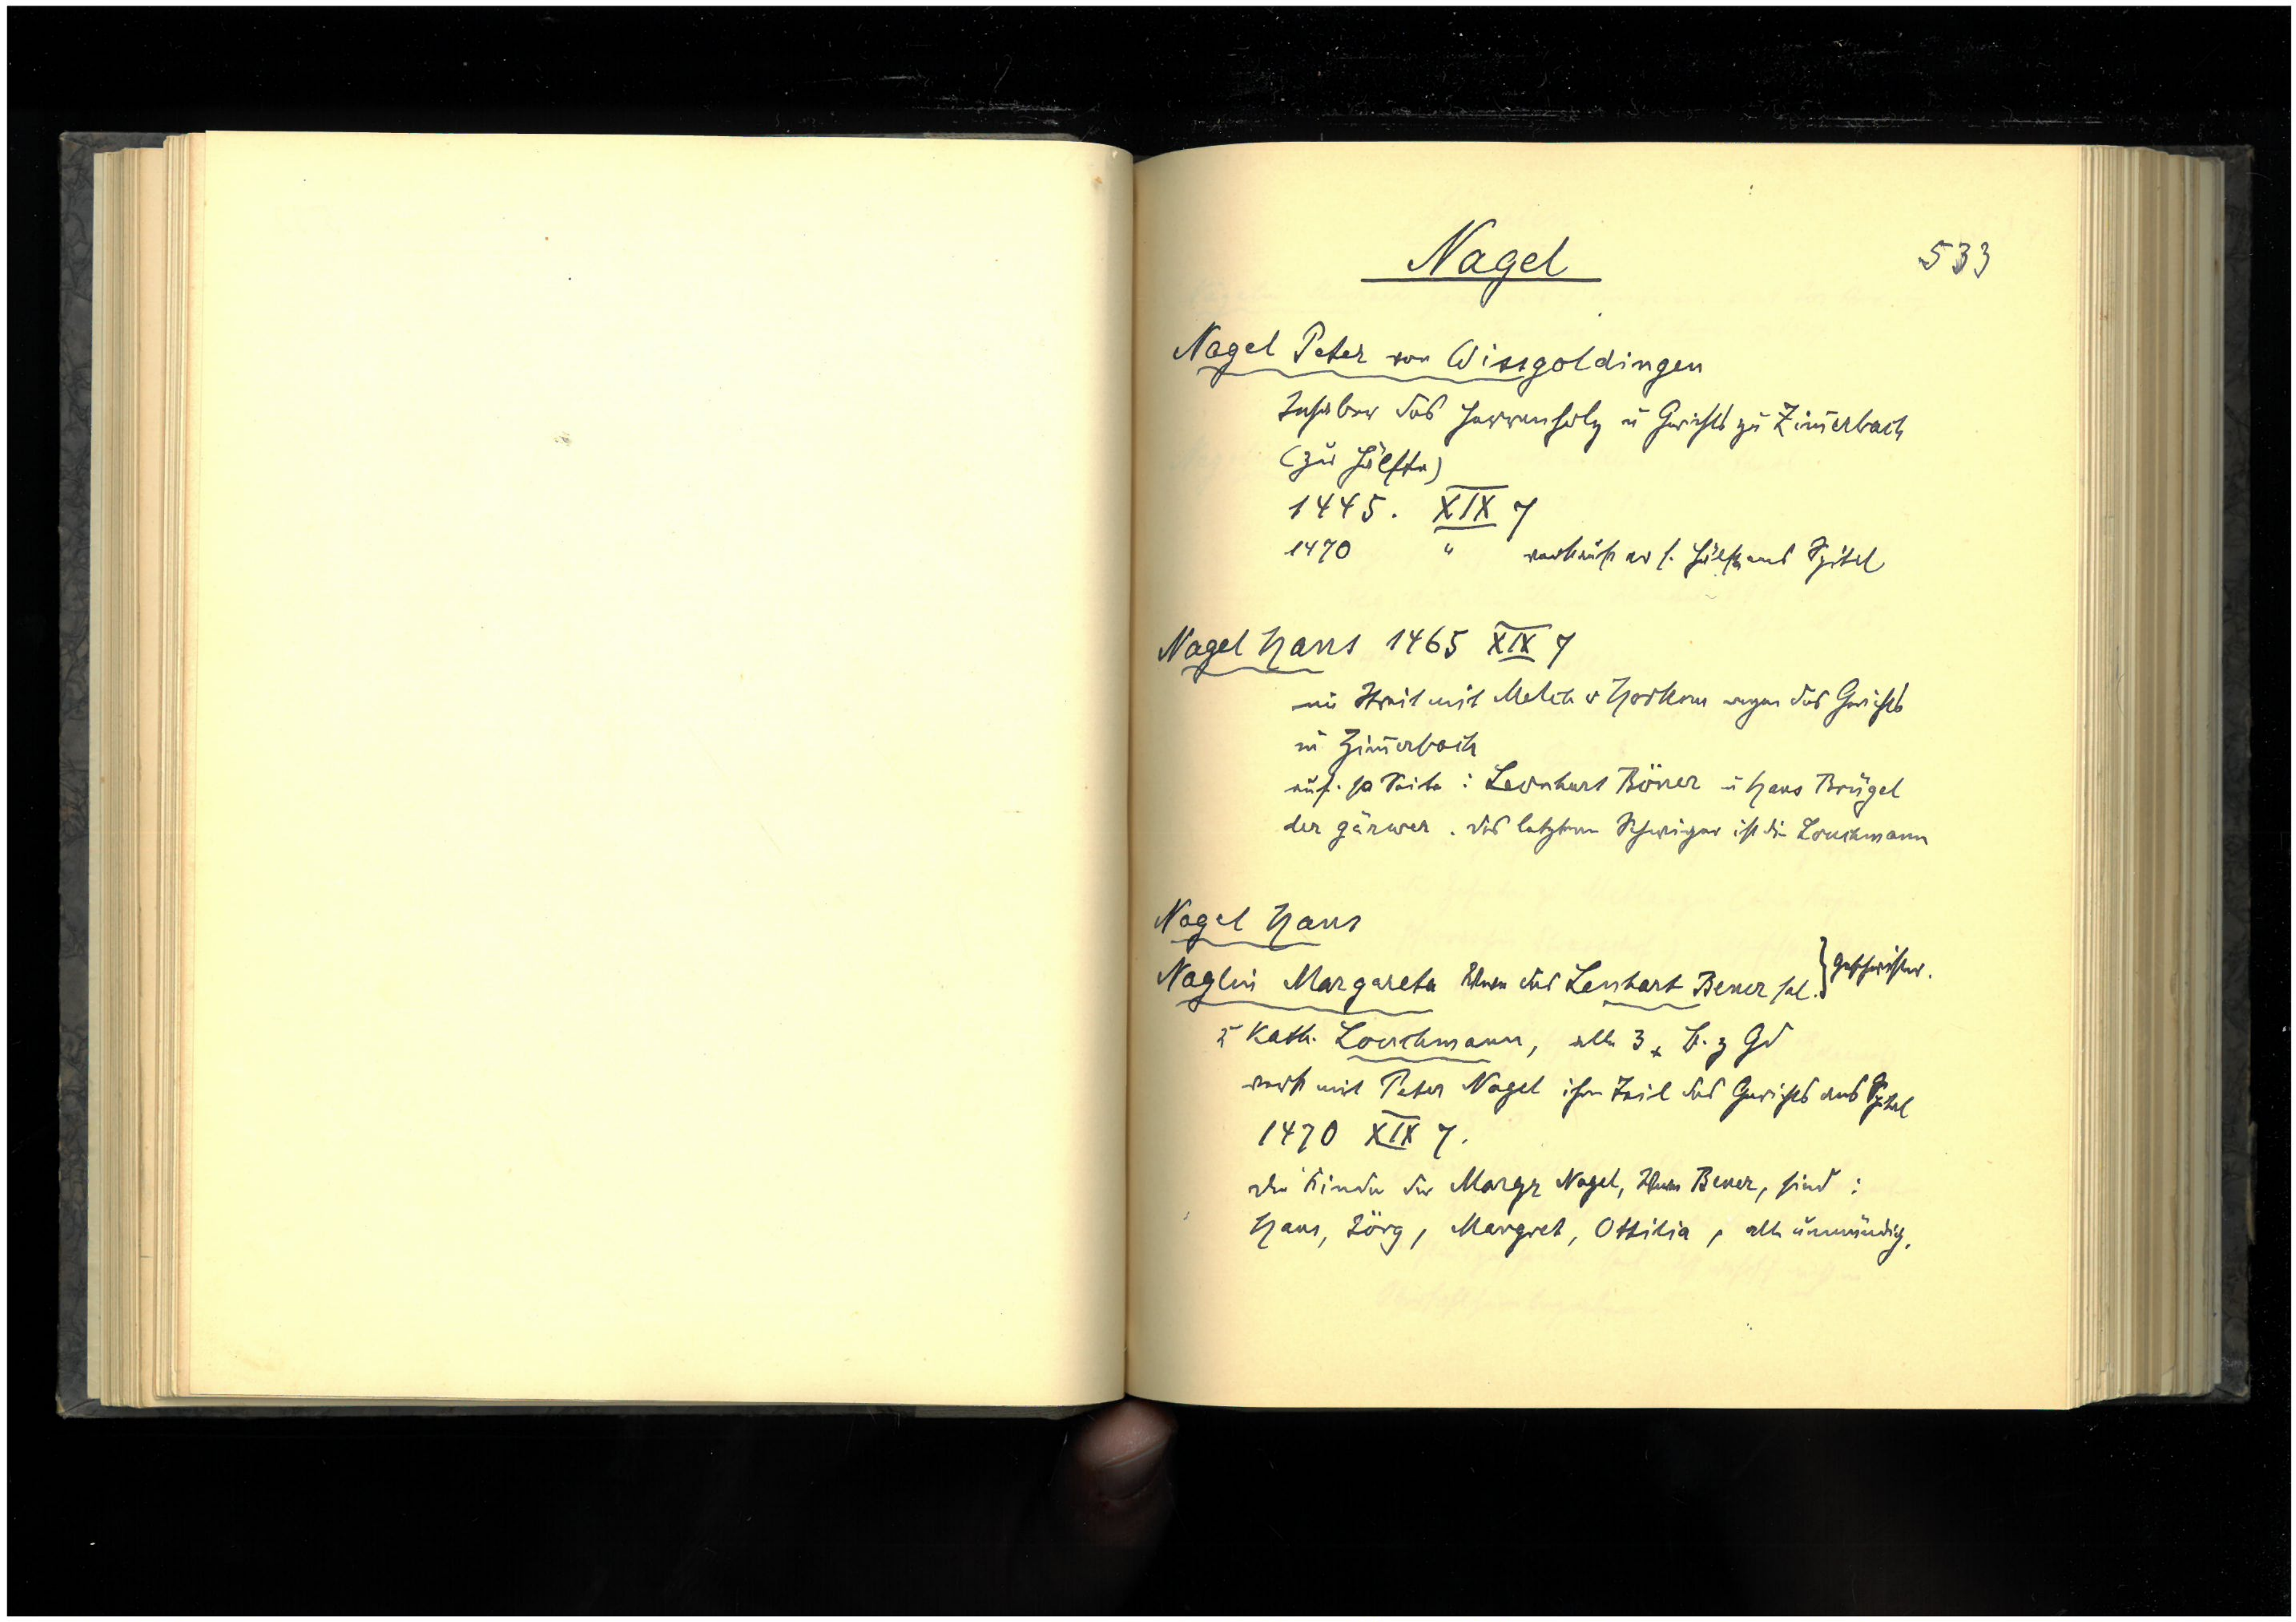 Nagel
533
Nagel Peter von Wissgoldingen
Inhaber des Herrenholz u Gerichts zu Zim̄erbach
(zur Hälfte)
1445. XIX 7
1470 " verkauft er s. Hälfte ans Spital
Nagel Hans 1465 XIX 7
im Streit mit Melch v Horkem wegen des Gerichts
in Zim̄erbach
auf. s. Seite: Leonhart Böner u Hans Brügel
der gärwer. des letztern Schwiger ist die Louchmann
Nagel Hans
Naglin Margareta Wwe des Lenhart Bener sel. } Geschwister.
u Kath. Louchmann, alle 3 B. z Gd
verk mit Peter Nagel ihren Teil des Gerichts ans Spital
1470 XIX 7.
die Kinder der Margr Nagel, Wwe Bener, sind:
Hans, Jörg, Margret, Ottilia, alle unmündig.